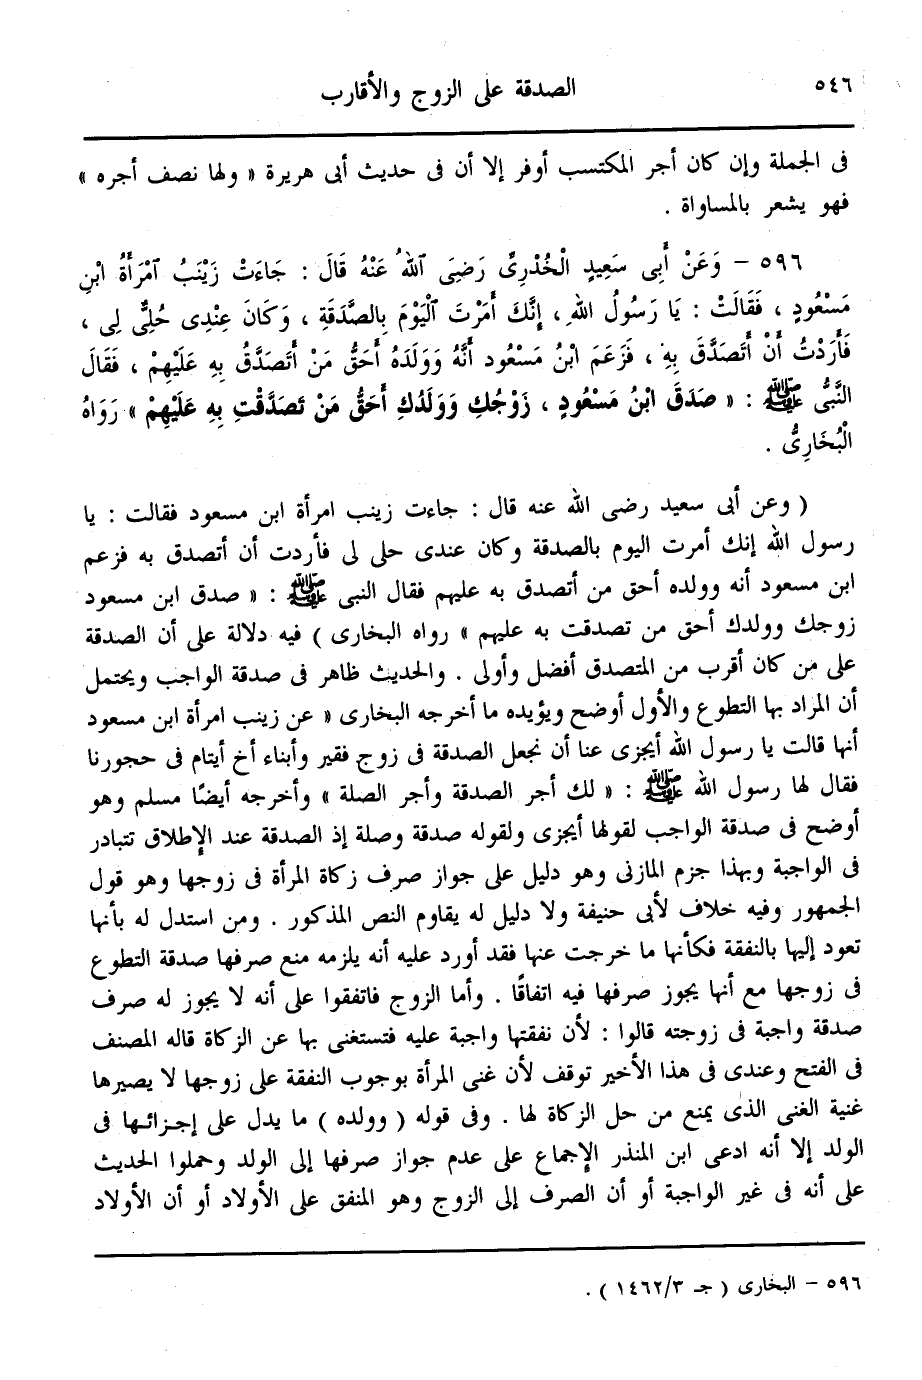 ٥٤٦
الصدقة على الزوج والأقارب
فى الجملة وإن كان أجر المكتسب أوفر إلا أن فى حديث أبى هريرة « ولها نصف أجره »
فهو يشعر بالمساواة .
٥٩٦ – وَعَنْ أَبِى سَعِيدٍ الْخُدْرِىِّ رَضِىَ ٱللهُ عَنْهُ قَالَ : جَاءَتْ زَيْنَبُ ٱمْرَأَةُ ابْنِ
مَسْعُودٍ ، فَقَالَتْ : يَا رَسُولُ اللهِ ، إِنَّكَ أَمَرْتَ ٱلْيَوْمَ بِالصَّدَقَةِ ، وَكَانَ عِنْدِى حُلِىٌّ لِى ،
فَأَرَدْتُ أَنْ أَتَصَدَّقَ بِهِ ، فَزَعَمَ ابْنُ مَسْعُود أَنَّهُ وَوَلَدَهُ أَحَقُّ مَنْ أَتَصَدَّقُ بِهِ عَلَيْهِمْ ، فَقَالَ
النَّبِىُّ ﷺ : « صَدَقَ ابْنُ مَسْعُودٍ ، زَوْجُكِ وَوَلَدُكِ أَحَقُّ مَنْ تَصَدَّقْتِ بِهِ عَلَيْهِمْ » رَوَاهُ
الْبُخَارِىُّ .
( وعن أبى سعيد رضى الله عنه قال : جاءت زينب امرأة ابن مسعود فقالت : يا
رسول الله إنك أمرت اليوم بالصدقة وكان عندى حلى لى فأردت أن أتصدق به فزعم
ابن مسعود أنه وولده أحق من أتصدق به عليهم فقال النبى ﷺ : « صدق ابن مسعود
زوجك وولدك أحق من تصدقت به عليهم » رواه البخارى ) فيه دلالة على أن الصدقة
على من كان أقرب من المتصدق أفضل وأولى . والحديث ظاهر فى صدقة الواجب ويحتمل
أن المراد بها التطوع والأول أوضح ويؤيده ما أخرجه البخارى « عن زينب امرأة ابن مسعود
أنها قالت يا رسول الله أيجزى عنا أن نجعل الصدقة فى زوج فقير وأبناء أخ أيتام فى حجورنا
فقال لها رسول الله ﷺ : « لك أجر الصدقة وأجر الصلة » وأخرجه أيضًا مسلم وهو
أوضح فى صدقة الواجب لقولها أيجزى ولقوله صدقة وصلة إذ الصدقة عند الإطلاق تتبادر
فى الواجبة وبهذا جزم المازنى وهو دليل على جواز صرف زكاة المرأة فى زوجها وهو قول
الجمهور وفيه خلاف لأبى حنيفة ولا دليل له يقاوم النص المذكور . ومن استدل له بأنها
تعود إليها بالنفقة فكأنها ما خرجت عنها فقد أورد عليه أنه يلزمه منع صرفها صدقة التطوع
فى زوجها مع أنها يجوز صرفها فيه اتفاقًا . وأما الزوج فاتفقوا على أنه لا يجوز له صرف
صدقة واجبة فى زوجته قالوا : لأن نفقتها واجبة عليه فتستغنى بها عن الزكاة قاله المصنف
فى الفتح وعندى فى هذا الأخير توقف لأن غنى المرأة بوجوب النفقة على زوجها لا يصيرها
غنية الغنى الذى يمنع من حل الزكاة لها . وفى قوله ( وولده ) ما يدل على إجـزائـها فى
الولد إلا أنه ادعى ابن المنذر الإجماع على عدم جواز صرفها إلى الولد وحملوا الحديث
على أنه فى غير الواجبة أو أن الصرف إلى الزوج وهو المنفق على الأولاد أو أن الأولاد
٥٩٦ – البخارى ( جـ ١٤٦٢/٣ ) .